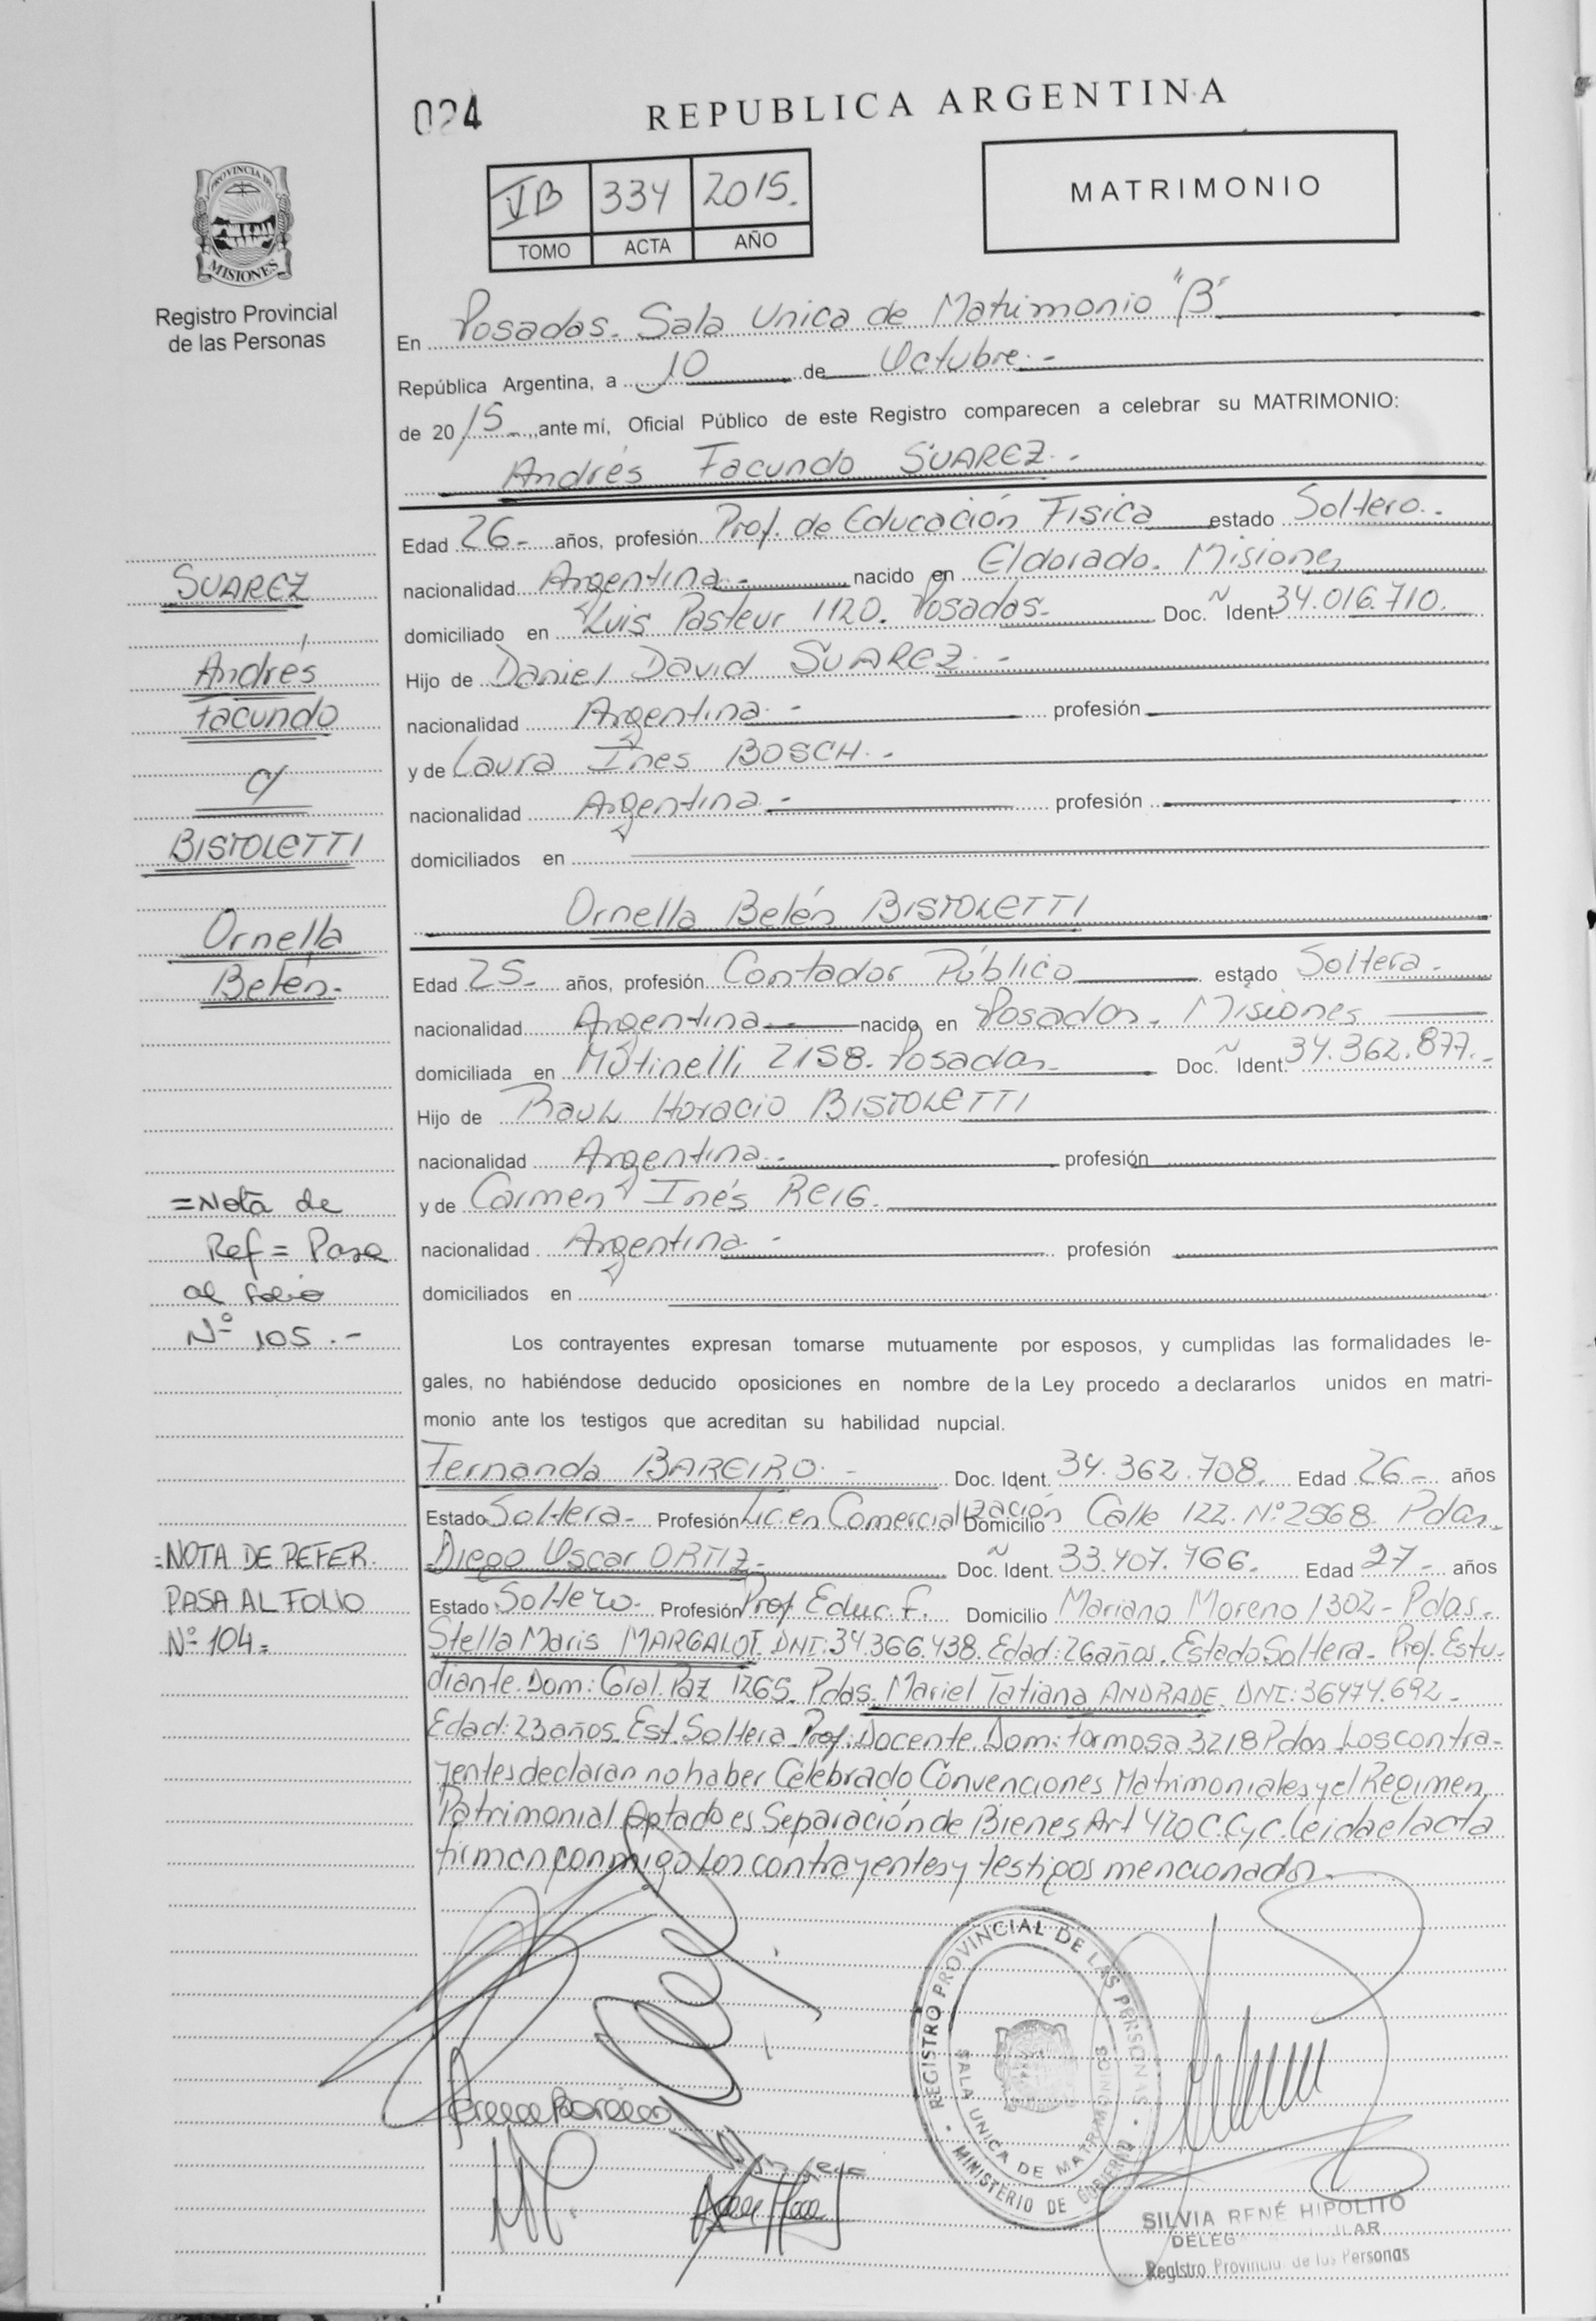 024
REPUBLICA ARGENTINA
VB 334 2015.
TOMO ACTA AÑO
MATRIMONIO
PROVINCIA DE
MISIONES
Registro Provincial
de las Personas
En Posadas. Sala Unica de Matrimonio "B"
República Argentina, a 10 de Octubre.-
de 2015-, ante mí, Oficial Público de este Registro comparecen a celebrar su MATRIMONIO:
Andrés Facundo SUAREZ.-
Edad 26- años, profesión Prof. de Educación Fisica estado Soltero.-
nacionalidad Argentina- nacido en Eldorado. Misiones
domiciliado en Luis Pasteur 1120. Posadas- Doc. Ident. 34.016.710.
Hijo de Daniel David SUAREZ.-
nacionalidad Argentina.- profesión
y de Laura Ines BOSCH.-
nacionalidad Argentina.- profesión
domiciliados en
Ornella Belén BISTOLETTI
Edad 25- años, profesión Contador Público estado Soltera-
nacionalidad Argentina- nacido en Posadas. Misiones
domiciliada en 2158. Posadas- Doc. Ident. 34.362.877.-
Hijo de Raul Horacio BISTOLETTI
nacionalidad Argentina.- profesión
y de Carmen Inés REIG.
nacionalidad Argentina- profesión
domiciliados en
Los contrayentes expresan tomarse mutuamente por esposos, y cumplidas las formalidades le-
gales, no habiéndose deducido oposiciones en nombre de la Ley procedo a declararlos unidos en matri-
monio ante los testigos que acreditan su habilidad nupcial.
Fernanda BAREIRO.- Doc. Ident. 34.362.708. Edad 26- años
Estado Soltera- Profesión Lic. en Comercialización Domicilio Calle 122. Nº 2568. Pdas.
Diego Oscar ORTIZ- Doc. Ident. 33.407.766. Edad 27- años
Estado Soltero- Profesión Prof Educ. F. Domicilio Mariano Moreno 1302- Pdas.
Stella Maris MARGALOT. DNI: 34.366.438. Edad: 26 años. Estado Soltera- Prof. Estu-
diante. Dom: Gral. Paz 1265. Pdas. Mariel Tatiana ANDRADE. DNI: 36474.692-
Edad: 23 años. Est. Soltera. Prof: Docente. Dom: Formosa 3218 Pdas Los contra-
yentes declaran no haber Celebrado Convenciones Matrimoniales y el Regimen
Patrimonial Optado es Separación de Bienes Art 420 C.C y C. leida el acta
firman conmigo los contrayentes y testigos mencionados.
SUAREZ
Andrés
Facundo
c/
BISTOLETTI
Ornella
Belén-
=Nota de
Ref= Pasa
al folio
Nº 105.-
=NOTA DE REFER.
PASA AL FOLIO
Nº 104=
REGISTRO PROVINCIAL DE LAS PERSONAS
SALA UNICA DE MATRIMONIOS
MINISTERIO DE GOBIERNO
SILVIA RENÉ HIPOLITO
Registro Provincial de las Personas